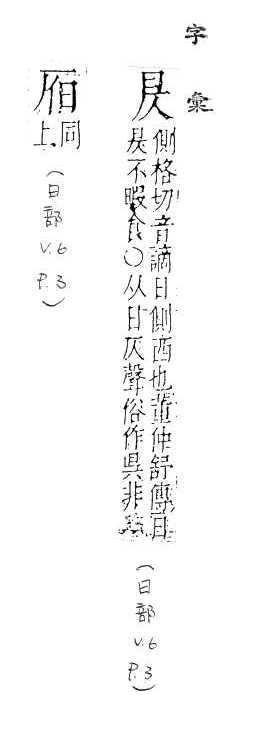 字彙
昃
側格切音謫日側西也董仲舒傳日
昃不暇食○从日仄聲俗作昗非
(日部 V.6 P.3)
同
上
(日部 V.6 P.3)